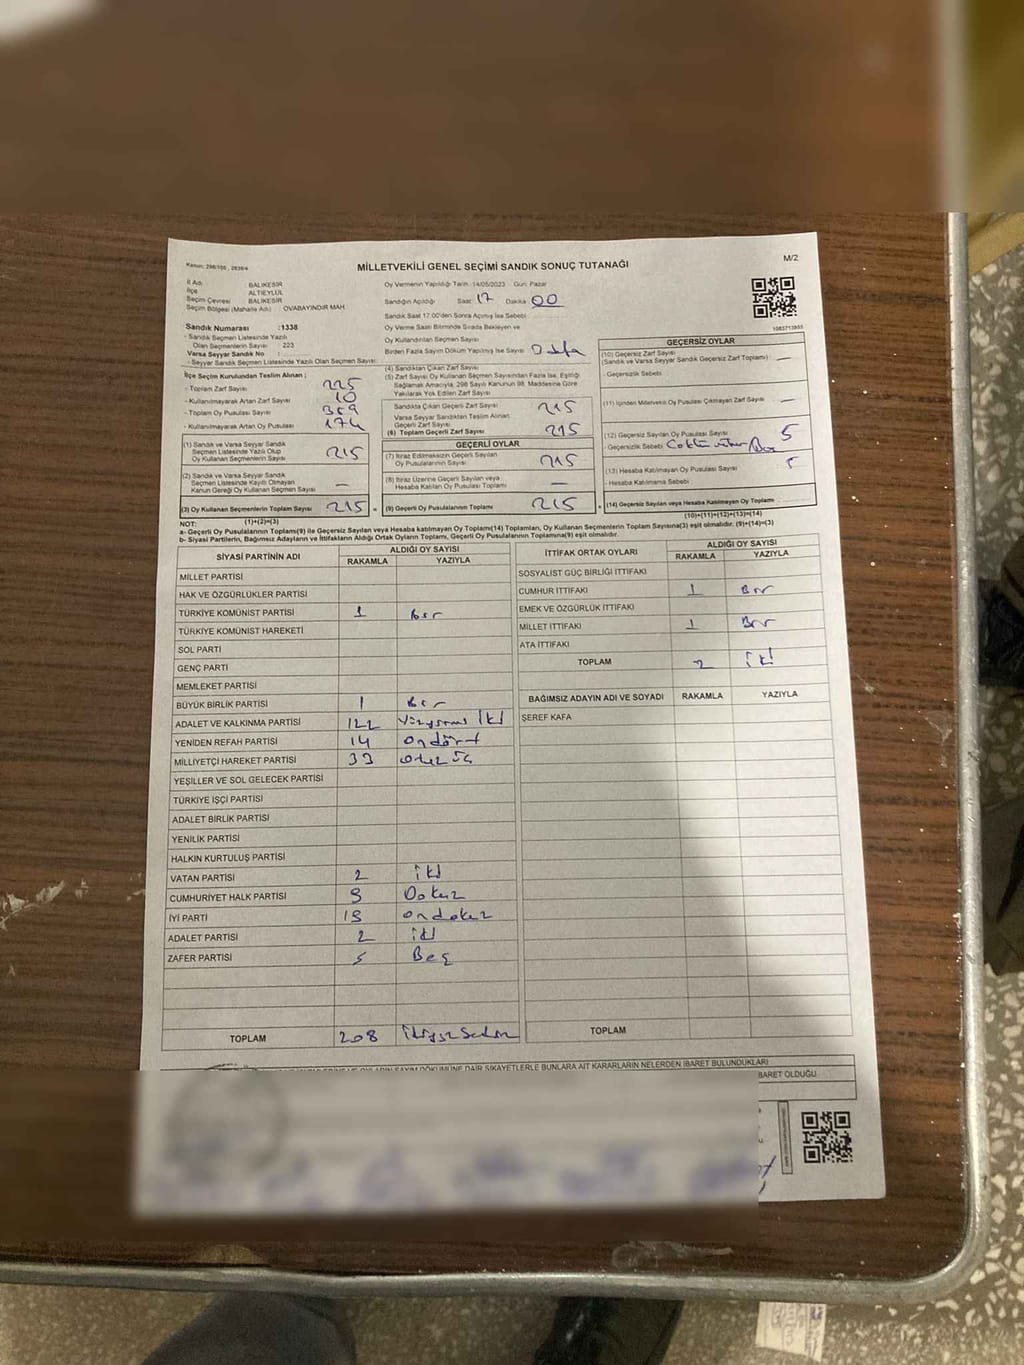 Kanun: 298/105, 2839/4
MİLLETVEKİLİ GENEL SEÇİMİ SANDIK SONUÇ TUTANAĞI
M/2
İl Adı BALIKESİR
İlçe ALTIEYLÜL
Seçim Çevresi BALIKESİR
Seçim Bölgesi (Mahalle Adı) OVABAYINDIR MAH.
Oy Vermenin Yapıldığı Tarih :14/05/2023 Gün: Pazar
Sandığın Açıldığı Saat 17 Dakika 00
Sandık Saat 17.00'den Sonra Açılmış İse Sebebi
Oy Verme Saati Bitiminde Sırada Bekleyen ve
Oy Kullandırılan Seçmen Sayısı
Birden Fazla Sayım Döküm Yapılmış İse Sayısı
1083713955
Sandık Numarası :1338
- Sandık Seçmen Listesinde Yazılı
Olan Seçmenlerin Sayısı : 223
Varsa Seyyar Sandık No :
- Seyyar Sandık Seçmen Listesinde Yazılı Olan Seçmen Sayısı:
İlçe Seçim Kurulundan Teslim Alınan ;
- Toplam Zarf Sayısı 225
- Kullanılmayarak Artan Zarf Sayısı 10
- Toplam Oy Pusulası Sayısı 389
- Kullanılmayarak Artan Oy Pusulası 174
(1) Sandık ve Varsa Seyyar Sandık
Seçmen Listesinde Yazılı Olup
Oy Kullanan Seçmenlerin Sayısı 215
(2) Sandık ve Varsa Seyyar Sandık
Seçmen Listesinde Kayıtlı Olmayan
Kanun Gereği Oy Kullanan Seçmen Sayısı —
(3) Oy Kullanan Seçmenlerin Toplam Sayısı 215
(1)+(2)=(3)
(4) Sandıktan Çıkan Zarf Sayısı
(5) Zarf Sayısı Oy Kullanan Seçmen Sayısından Fazla İse, Eşitliği
Sağlamak Amacıyla, 298 Sayılı Kanunun 98. Maddesine Göre
Yakılarak Yok Edilen Zarf Sayısı
Sandıkta Çıkan Geçerli Zarf Sayısı 215
Varsa Seyyar Sandıktan Teslim Alınan
Geçerli Zarf Sayısı
(6) Toplam Geçerli Zarf Sayısı 215
GEÇERLİ OYLAR
(7) İtiraz Edilmeksizin Geçerli Sayılan
Oy Pusulalarının Sayısı 215
(8) İtiraz Üzerine Geçerli Sayılan veya
Hesaba Katılan Oy Pusulası Toplamı —
= (9) Geçerli Oy Pusulalarının Toplamı 215
GEÇERSİZ OYLAR
(10) Geçersiz Zarf Sayısı
(Sandık ve Varsa Seyyar Sandık Geçersiz Zarf Toplamı) : —
- Geçersizlik Sebebi
(11) İçinden Milletvekili Oy Pusulası Çıkmayan Zarf Sayısı —
(12) Geçersiz Sayılan Oy Pusulası Sayısı 5
- Geçersizlik Sebebi
(13) Hesaba Katılmayan Oy Pusulası Sayısı
- Hesaba Katılmama Sebebi
+ (14) Geçersiz Sayılan veya Hesaba Katılmayan Oy Toplamı
(10)+(11)+(12)+(13)=(14)
NOT:
a- Geçerli Oy Pusulalarının Toplamı(9) ile Geçersiz Sayılan veya Hesaba katılmayan Oy Toplamı(14) Toplamları, Oy Kullanan Seçmenlerin Toplam Sayısına(3) eşit olmalıdır. (9)+(14)=(3)
b- Siyasi Partilerin, Bağımsız Adayların ve İttifakların Aldığı Ortak Oyların Toplamı, Geçerli Oy Pusulalarının Toplamına(9) eşit olmalıdır.
SİYASİ PARTİNİN ADI ALDIĞI OY SAYISI
RAKAMLA YAZIYLA
MİLLET PARTİSİ
HAK VE ÖZGÜRLÜKLER PARTİSİ
TÜRKİYE KOMÜNİST PARTİSİ 1 Bir
TÜRKİYE KOMÜNİST HAREKETİ
SOL PARTİ
GENÇ PARTİ
MEMLEKET PARTİSİ
BÜYÜK BİRLİK PARTİSİ 1 Bir
ADALET VE KALKINMA PARTİSİ 122 Yüzyirmi İki
YENİDEN REFAH PARTİSİ 14 ondört
MİLLİYETÇİ HAREKET PARTİSİ 33 otuz üç
YEŞİLLER VE SOL GELECEK PARTİSİ
TÜRKİYE İŞÇİ PARTİSİ
ADALET BİRLİK PARTİSİ
YENİLİK PARTİSİ
HALKIN KURTULUŞ PARTİSİ
VATAN PARTİSİ 2 iki
CUMHURİYET HALK PARTİSİ 9 Dokuz
İYİ PARTİ 19 ondokuz
ADALET PARTİSİ 2 iki
ZAFER PARTİSİ 5 Beş
TOPLAM 208 ikiyüzSekiz
İTTİFAK ORTAK OYLARI ALDIĞI OY SAYISI
RAKAMLA YAZIYLA
SOSYALİST GÜÇ BİRLİĞİ İTTİFAKI
CUMHUR İTTİFAKI 1 Bir
EMEK VE ÖZGÜRLÜK İTTİFAKI
MİLLET İTTİFAKI 1 Bir
ATA İTTİFAKI
TOPLAM 2 iki
BAĞIMSIZ ADAYIN ADI VE SOYADI RAKAMLA YAZIYLA
ŞEREF KAFA
TOPLAM
DÖKÜMÜNE DAİR ŞİKAYETLERLE BUNLARA AİT KARARLARIN NELERDEN İBARET BULUNDUKLARI
BARET OLDUĞU